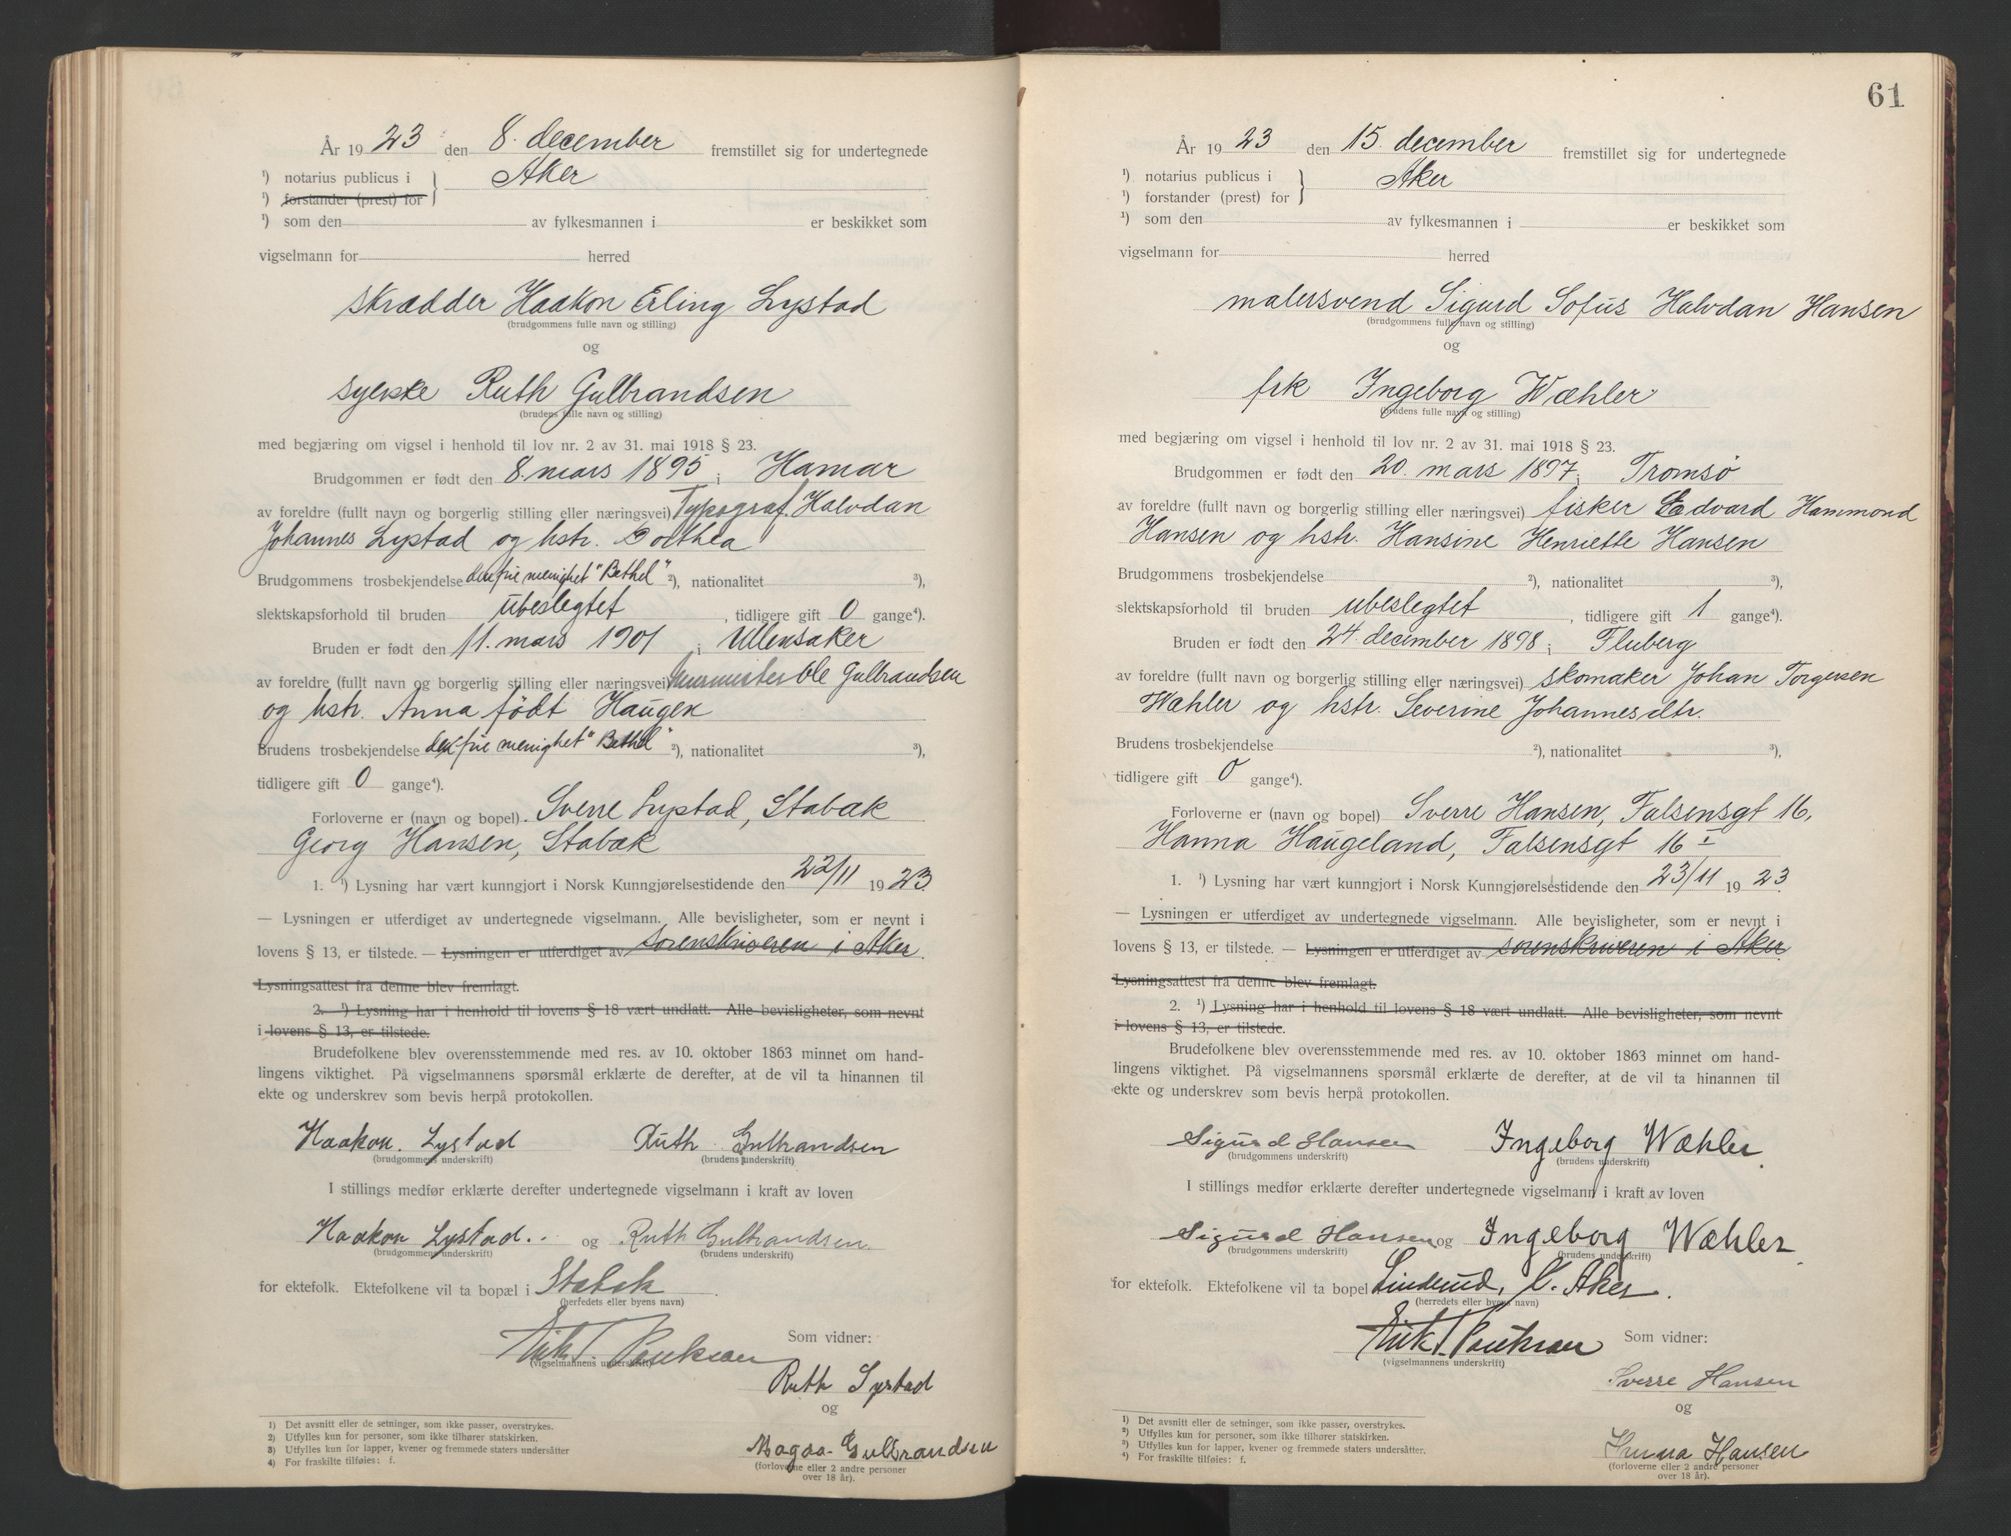 År 1923 den 8. december fremstillet sig for undertegnede
¹) notarius publicus i } Aker
¹) forstander (prest) for
¹) som den av fylkesmannen i er beskikket som
vigselmann for herred
skrædder Haakon Erling Lystad
(brudgommens fulle navn og stilling)
og
syerske Ruth Gulbrandsen
(brudens fulle navn og stilling)
med begjæring om vigsel i henhold til lov nr. 2 av 31. mai 1918 § 23.
Brudgommen er født den 8. mars 1895 i Hamar
av foreldre (fullt navn og borgerlig stilling eller næringsvei) Typograf Halvdan
Johannes Lystad og hstr. Dorthea
Brudgommens trosbekjendelse den frie menighet "Bethel" ²), nationalitet ³),
slektskapsforhold til bruden ubeslegtet, tidligere gift 0 gange⁴).
Bruden er født den 11. mars 1901 i Ullensaker
av foreldre (fullt navn og borgerlig stilling eller næringsvei) Murmester Ole Gulbrandsen
og hstr. Anna født Haugen
Brudens trosbekjendelse den frie menighet "Bethel" ²), nationalitet ³),
tidligere gift 0 gange⁴).
Forloverne er (navn og bopel). Sverre Lystad, Stabæk
Georg Hansen, Stabæk
1. ¹) Lysning har vært kunngjort i Norsk Kunngjørelsestidende den 22/11 1923
— Lysningen er utferdiget av undertegnede vigselmann. Alle bevisligheter, som er nevnt i
lovens § 13, er tilstede. — Lysningen er utferdiget av sorenskriveren i Aker.
Lysningsattest fra denne blev fremlagt.
2. ¹) Lysning har i henhold til lovens § 18 vært undlatt. Alle bevisligheter, som nevnt
i lovens § 13, er tilstede.
Brudefolkene blev overensstemmende med res. av 10. oktober 1863 minnet om hand-
lingens viktighet. På vigselmannens spørsmål erklærte de derefter, at de vil ta hinannen til
ekte og underskrev som bevis herpå protokollen.
Haakon. Lystad Ruth Gulbrandsen
(brudgommens underskrift) (brudens underskrift)
I stillings medfør erklærte derefter undertegnede vigselmann i kraft av loven
Haakon Lystad.. og Ruth Gulbrandsen.
(brudgommens underskrift) (brudens underskrift)
for ektefolk. Ektefolkene vil ta bopæl i Stabæk
(herredets eller byens navn)
Som vidner:
(vigselmannens underskrift)
Ruth Lystad
og
Magda Gulbrandsen
(forloverne eller 2 andre personer
over 18 år).
1) Det avsnitt eller de setninger, som ikke passer, overstrykes.
2) Utfylles kun for personer, som ikke tilhører statskirken.
3) Utfylles kun for lapper, kvener og fremmede staters undersåtter
4) For fraskilte tilføies: f.
61
År 1923 den 15. december fremstillet sig for undertegnede
¹) notarius publicus i } Aker
¹) forstander (prest) for
¹) som den av fylkesmannen i er beskikket som
vigselmann for herred
malersvend Sigurd Sofus Halvdan Hansen
(brudgommens fulle navn og stilling)
og
frk Ingeborg Wæhler
(brudens fulle navn og stilling)
med begjæring om vigsel i henhold til lov nr. 2 av 31. mai 1918 § 23.
Brudgommen er født den 20. mars 1897 i Tromsø
av foreldre (fullt navn og borgerlig stilling eller næringsvei) fisker Edvard Hammond
Hansen og hstr. Hansine Henriette Hansen
Brudgommens trosbekjendelse ²), nationalitet ³),
slektskapsforhold til bruden ubeslegtet, tidligere gift 1 gange⁴).
Bruden er født den 24. december 1898 i Fluberg
av foreldre (fullt navn og borgerlig stilling eller næringsvei) skomaker Johan Torgersen
Wæhler og hstr. Severine Johannesdtr.
Brudens trosbekjendelse ²), nationalitet ³),
tidligere gift 0 gange⁴).
Forloverne er (navn og bopel) Sverre Hansen, Falsensgt 16,
Hanna Haugeland, Falsensgt 16 I
1. ¹) Lysning har vært kunngjort i Norsk Kunngjørelsestidende den 23/11 1923
— Lysningen er utferdiget av undertegnede vigselmann. Alle bevisligheter, som er nevnt i
lovens § 13, er tilstede. — Lysningen er utferdiget av sorenskriveren i Aker
Lysningsattest fra denne blev fremlagt.
2. ¹) Lysning har i henhold til lovens § 18 vært undlatt. Alle bevisligheter, som nevnt
i lovens § 13, er tilstede.
Brudefolkene blev overensstemmende med res. av 10. oktober 1863 minnet om hand-
lingens viktighet. På vigselmannens spørsmål erklærte de derefter, at de vil ta hinannen til
ekte og underskrev som bevis herpå protokollen.
Sigurd Hansen Ingeborg Wæhler.
(brudgommens underskrift) (brudens underskrift)
I stillings medfør erklærte derefter undertegnede vigselmann i kraft av loven
Sigurd Hansen og Ingeborg Wæhler.
(brudgommens underskrift) (brudens underskrift)
for ektefolk. Ektefolkene vil ta bopel Linderud, V. Aker.
(herredets eller byens navn)
Som vidner:
(vigselmannens underskrift)
Sverre Hansen
og
Hanna Hansen
(forloverne eller 2 andre personer
over 18 år).
¹) Det avsnitt eller de setninger, som ikke passer, overstrykes.
²) Utfylles kun for personer, som ikke tilhører statskirken.
³) Utfylles kun for lapper, kvener og fremmede staters undersåtter.
⁴) For fraskilte tilføies: f.